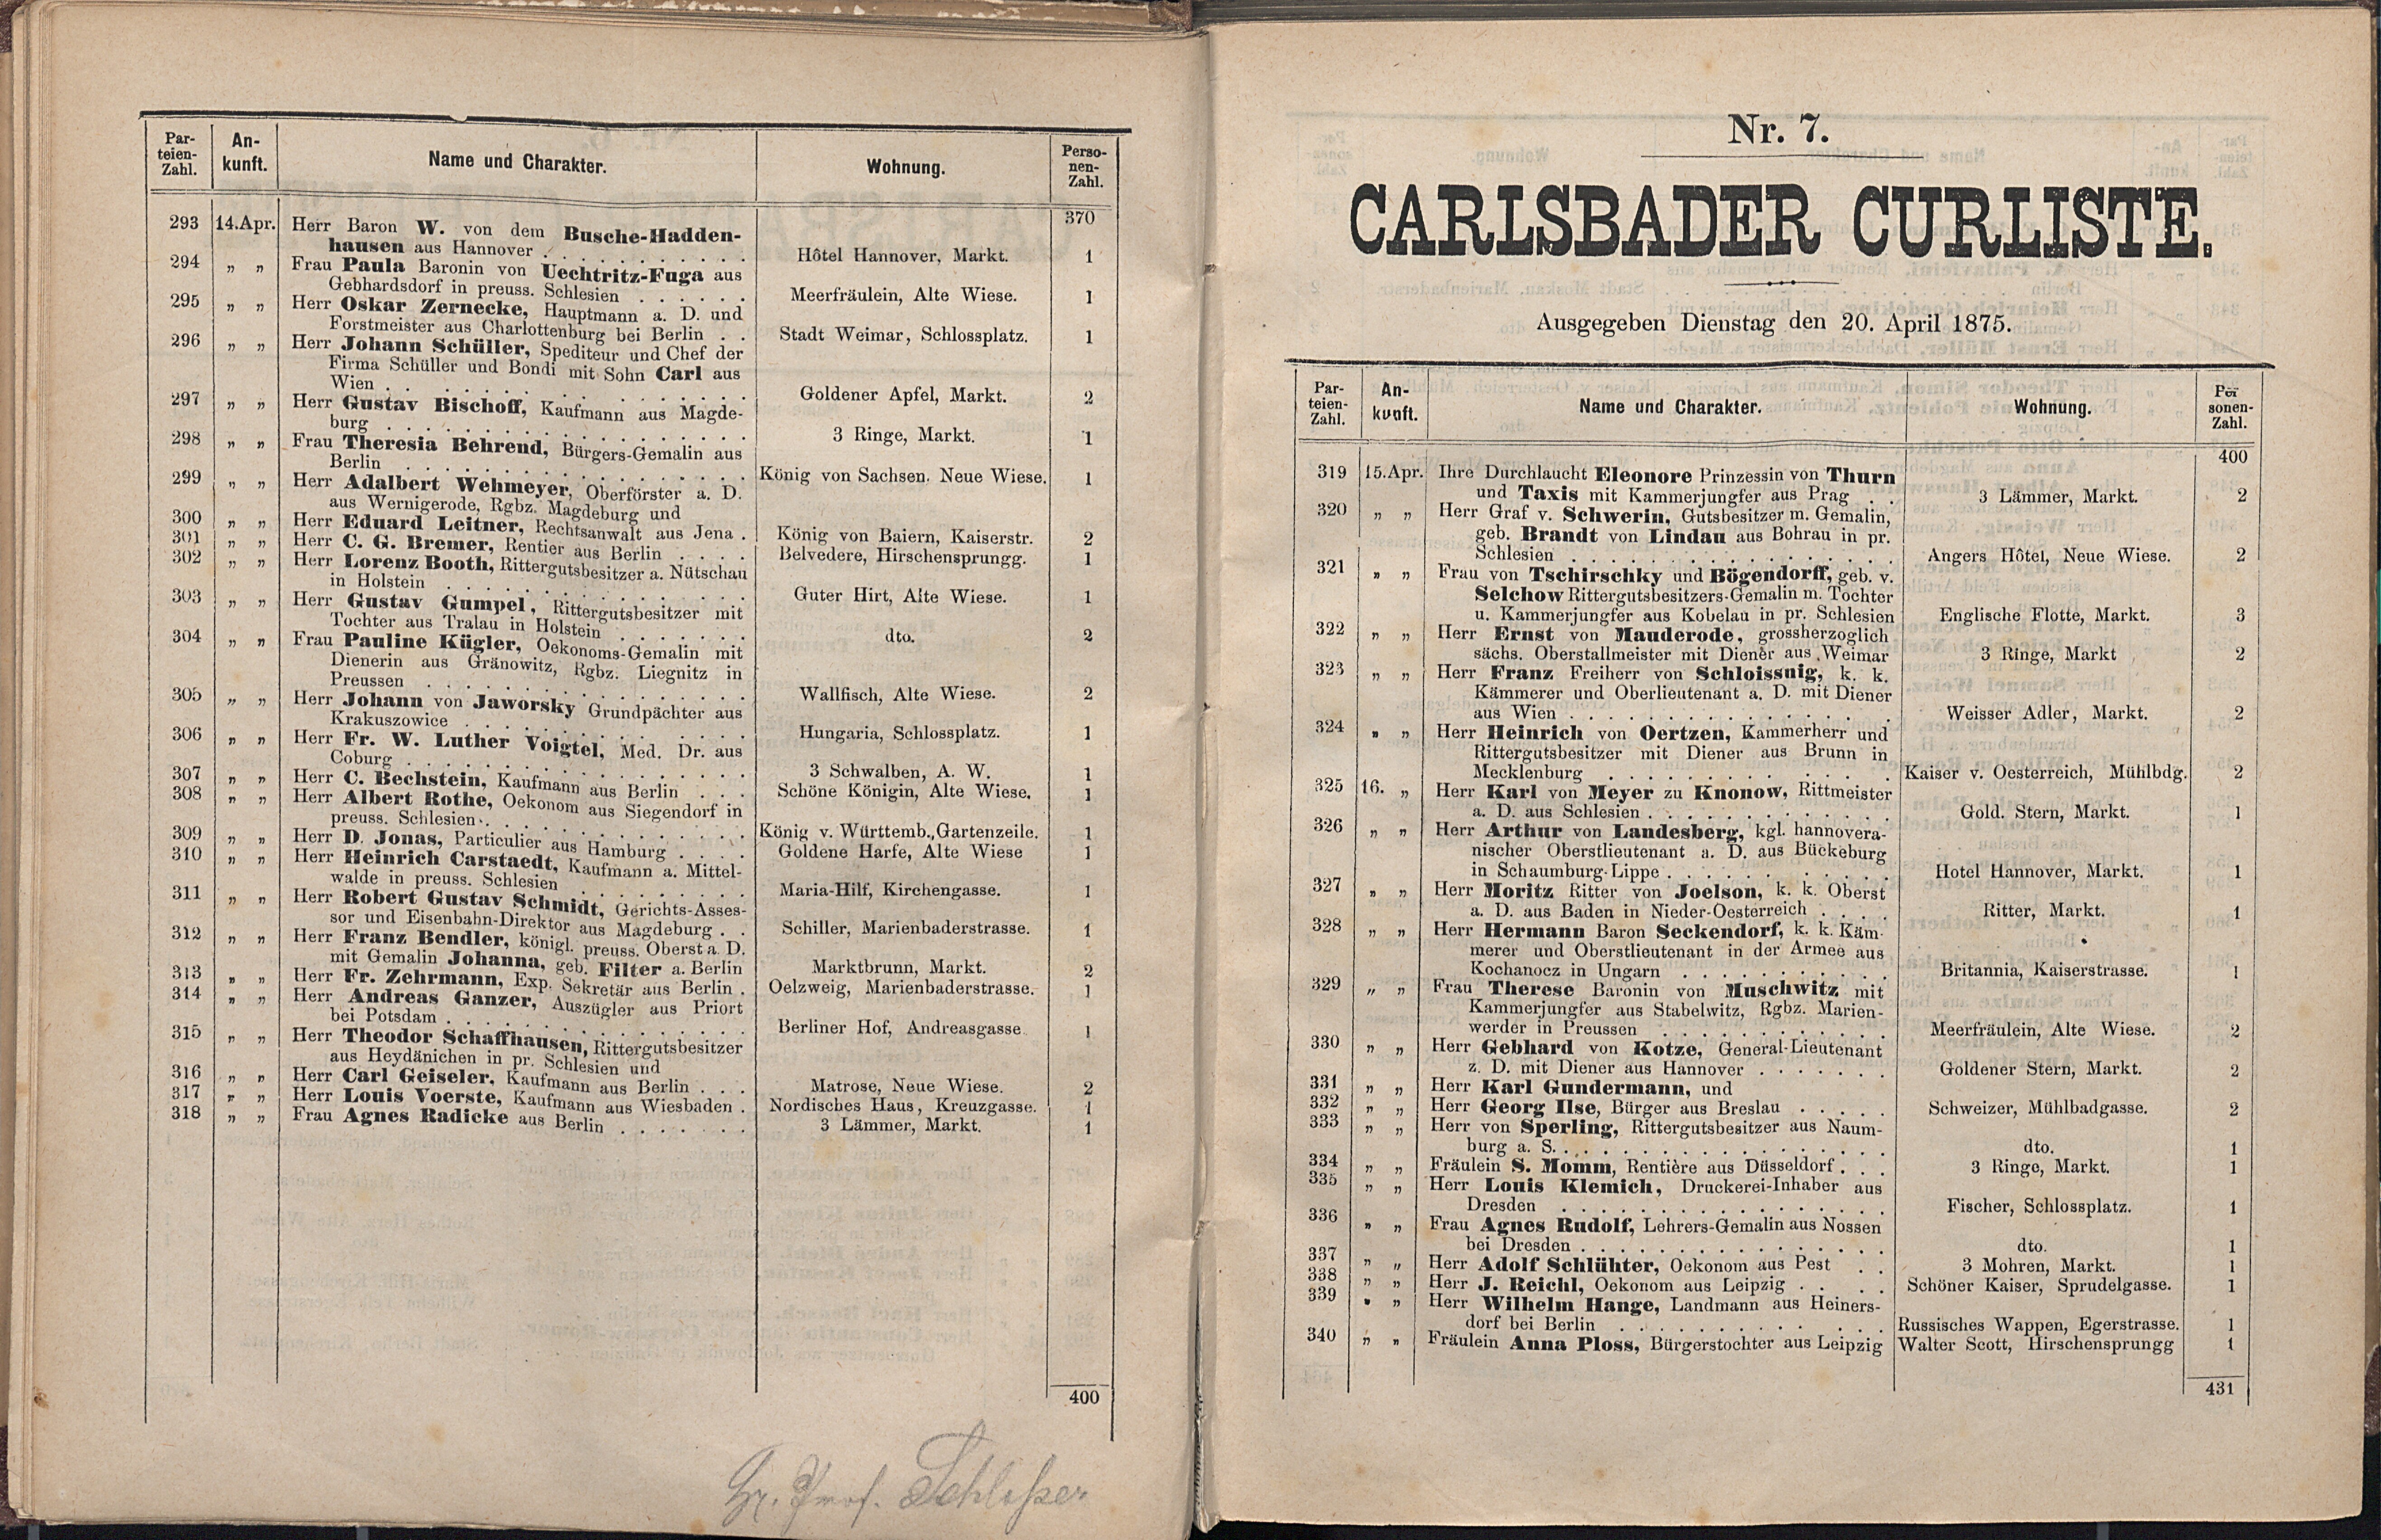 Par-
teien-
Zahl. An-
kunft. Name und Charakter. Wohnung. Perso-
nen-
Zahl.
370
293 14.Apr. Herr Baron W. von dem Busche-Hadden-
hausen aus Hannover . . . . . . . . . . . Hôtel Hannover, Markt. 1
294 „ „ Frau Paula Baronin von Uechtritz-Fuga aus
Gebhardsdorf in preuss. Schlesien . . . . . . Meerfräulein, Alte Wiese. 1
295 „ „ Herr Oskar Zernecke, Hauptmann a. D. und
Forstmeister aus Charlottenburg bei Berlin . . Stadt Weimar, Schlossplatz. 1
296 „ „ Herr Johann Schüller, Spediteur und Chef der
Firma Schüller und Bondi mit Sohn Carl aus
Wien . . . . . . . . . . . . Goldener Apfel, Markt. 2
297 „ „ Herr Gustav Bischoff, Kaufmann aus Magde-
burg . . . . . . . . . . . . 3 Ringe, Markt. 1
298 „ „ Frau Theresia Behrend, Bürgers-Gemalin aus
Berlin . . . . . . . . . . . . König von Sachsen, Neue Wiese. 1
299 „ „ Herr Adalbert Wehmeyer, Oberförster a. D.
aus Wernigerode, Rgbz. Magdeburg und
300 „ „ Herr Eduard Leitner, Rechtsanwalt aus Jena . König von Baiern, Kaiserstr. 2
301 „ „ Herr C. G. Bremer, Rentier aus Berlin . . . . Belvedere, Hirschensprungg. 1
302 „ „ Herr Lorenz Booth, Rittergutsbesitzer a. Nütschau
in Holstein . . . . . . . . . . . . Guter Hirt, Alte Wiese. 1
303 „ „ Herr Gustav Gumpel, Rittergutsbesitzer mit
Tochter aus Tralau in Holstein . . . . . . . dto. 2
304 „ „ Frau Pauline Kügler, Oekonoms-Gemalin mit
Dienerin aus Gränowitz, Rgbz. Liegnitz in
Preussen . . . . . . . . . . . . Wallfisch, Alte Wiese. 2
305 „ „ Herr Johann von Jaworsky Grundpächter aus
Krakuszowice . . . . . . . . . . . . Hungaria, Schlossplatz. 1
306 „ „ Herr Fr. W. Luther Voigtel, Med. Dr. aus
Coburg . . . . . . . . . . . . 3 Schwalben, A. W. 1
307 „ „ Herr C. Bechstein, Kaufmann aus Berlin . . . Schöne Königin, Alte Wiese. 1
308 „ „ Herr Albert Rothe, Oekonom aus Siegendorf in
preuss. Schlesien . . . . . . . . . . . . König v. Württemb., Gartenzeile. 1
309 „ „ Herr D. Jonas, Particulier aus Hamburg . . . . Goldene Harfe, Alte Wiese 1
310 „ „ Herr Heinrich Carstaedt, Kaufmann a. Mittel-
walde in preuss. Schlesien . . . . . . . . Maria-Hilf, Kirchengasse. 1
311 „ „ Herr Robert Gustav Schmidt, Gerichts-Asses-
sor und Eisenbahn-Direktor aus Magdeburg . . Schiller, Marienbaderstrasse. 1
312 „ „ Herr Franz Bendler, königl. preuss. Oberst a. D.
mit Gemalin Johanna, geb. Filter a. Berlin Marktbrunn, Markt. 2
313 „ „ Herr Fr. Zehrmann, Exp. Sekretär aus Berlin . Oelzweig, Marienbaderstrasse. 1
314 „ „ Herr Andreas Ganzer, Auszügler aus Priort
bei Potsdam . . . . . . . . . . . . Berliner Hof, Andreasgasse 1
315 „ „ Herr Theodor Schaffhausen, Rittergutsbesitzer
aus Heydänichen in pr. Schlesien und
316 „ „ Herr Carl Geiseler, Kaufmann aus Berlin . . . Matrose, Neue Wiese. 2
317 „ „ Herr Louis Voerste, Kaufmann aus Wiesbaden . Nordisches Haus, Kreuzgasse. 1
318 „ „ Frau Agnes Radicke aus Berlin . . . . . . . 3 Lämmer, Markt. 1
400
Hr. Prof. Schlosser
Nr. 7.
CARLSBADER CURLISTE.
Ausgegeben Dienstag den 20. April 1875.
Par-
teien-
Zahl. An-
kunft. Name und Charakter. Wohnung. Per
sonen-
Zahl.
400
319 15.Apr. Ihre Durchlaucht Eleonore Prinzessin von Thurn
und Taxis mit Kammerjungfer aus Prag . . 3 Lämmer, Markt. 2
320 „ „ Herr Graf v. Schwerin, Gutsbesitzer m. Gemalin,
geb. Brandt von Lindau aus Bohrau in pr.
Schlesien . . . . . . . . . . . . Angers Hôtel, Neue Wiese. 2
321 „ „ Frau von Tschirschky und Bögendorff, geb. v.
Selchow Rittergutsbesitzers-Gemalin m. Tochter
u. Kammerjungfer aus Kobelau in pr. Schlesien Englische Flotte, Markt. 3
322 „ „ Herr Ernst von Mauderode, grossherzoglich
sächs. Oberstallmeister mit Diener aus Weimar 3 Ringe, Markt 2
323 „ „ Herr Franz Freiherr von Schloissnig, k. k.
Kämmerer und Oberlieutenant a. D. mit Diener
aus Wien . . . . . . . . . . . . Weisser Adler, Markt. 2
324 „ „ Herr Heinrich von Oertzen, Kammerherr und
Rittergutsbesitzer mit Diener aus Brunn in
Mecklenburg . . . . . . . . . . . . Kaiser v. Oesterreich, Mühlbdg. 2
325 16. „ Herr Karl von Meyer zu Knonow, Rittmeister
a. D. aus Schlesien . . . . . . . . . . . . Gold. Stern, Markt. 1
326 „ „ Herr Arthur von Landesberg, kgl. hannovera-
nischer Oberstlieutenant a. D. aus Bückeburg
in Schaumburg-Lippe . . . . . . . . . . . . Hotel Hannover, Markt. 1
327 „ „ Herr Moritz Ritter von Joelson, k. k. Oberst
a. D. aus Baden in Nieder-Oesterreich . . . . Ritter, Markt. 1
328 „ „ Herr Hermann Baron Seckendorf, k. k. Käm-
merer und Oberstlieutenant in der Armee aus
Kochanocz in Ungarn . . . . . . . . . . . Britannia, Kaiserstrasse. 1
329 „ „ Frau Therese Baronin von Muschwitz mit
Kammerjungfer aus Stabelwitz, Rgbz. Marien-
werder in Preussen . . . . . . . . . . . Meerfräulein, Alte Wiese. 2
330 „ „ Herr Gebhard von Kotze, General-Lieutenant
z. D. mit Diener aus Hannover . . . . . . . Goldener Stern, Markt. 2
331 „ „ Herr Karl Gundermann, und
332 „ „ Herr Georg Ilse, Bürger aus Breslau . . . . . Schweizer, Mühlbadgasse. 2
333 „ „ Herr von Sperling, Rittergutsbesitzer aus Naum-
burg a. S. . . . . . . . . . . . . dto. 1
334 „ „ Fräulein S. Momm, Rentière aus Düsseldorf . . . 3 Ringe, Markt. 1
335 „ „ Herr Louis Klemich, Druckerei-Inhaber aus
Dresden . . . . . . . . . . . . Fischer, Schlossplatz. 1
336 „ „ Frau Agnes Rudolf, Lehrers-Gemalin aus Nossen
bei Dresden . . . . . . . . . . . . dto. 1
337 „ „ Herr Adolf Schlühter, Oekonom aus Pest . . 3 Mohren, Markt. 1
338 „ „ Herr J. Reichl, Oekonom aus Leipzig . . . . Schöner Kaiser, Sprudelgasse. 1
339 „ „ Herr Wilhelm Hange, Landmann aus Heiners-
dorf bei Berlin . . . . . . . . . . . . Russisches Wappen, Egerstrasse. 1
340 „ „ Fräulein Anna Ploss, Bürgerstochter aus Leipzig Walter Scott, Hirschensprungg 1
431